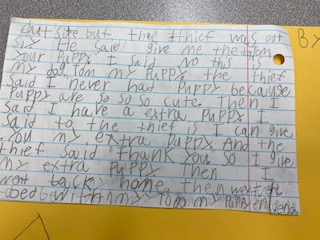 outside but the thief was out
sid He said give me the tom
your Puppy I said No this is
my dog tom my Puppy the thief
said I never had Puppy because
Puppy are so so so cute. Then I
Said I have a extra Puppy I
said to the thief is I can give
you my extra Puppy. And the
thief said Thank you so I give
my extra Puppy Then I
went back home then went to
bed with my Tom my Puppy end
By